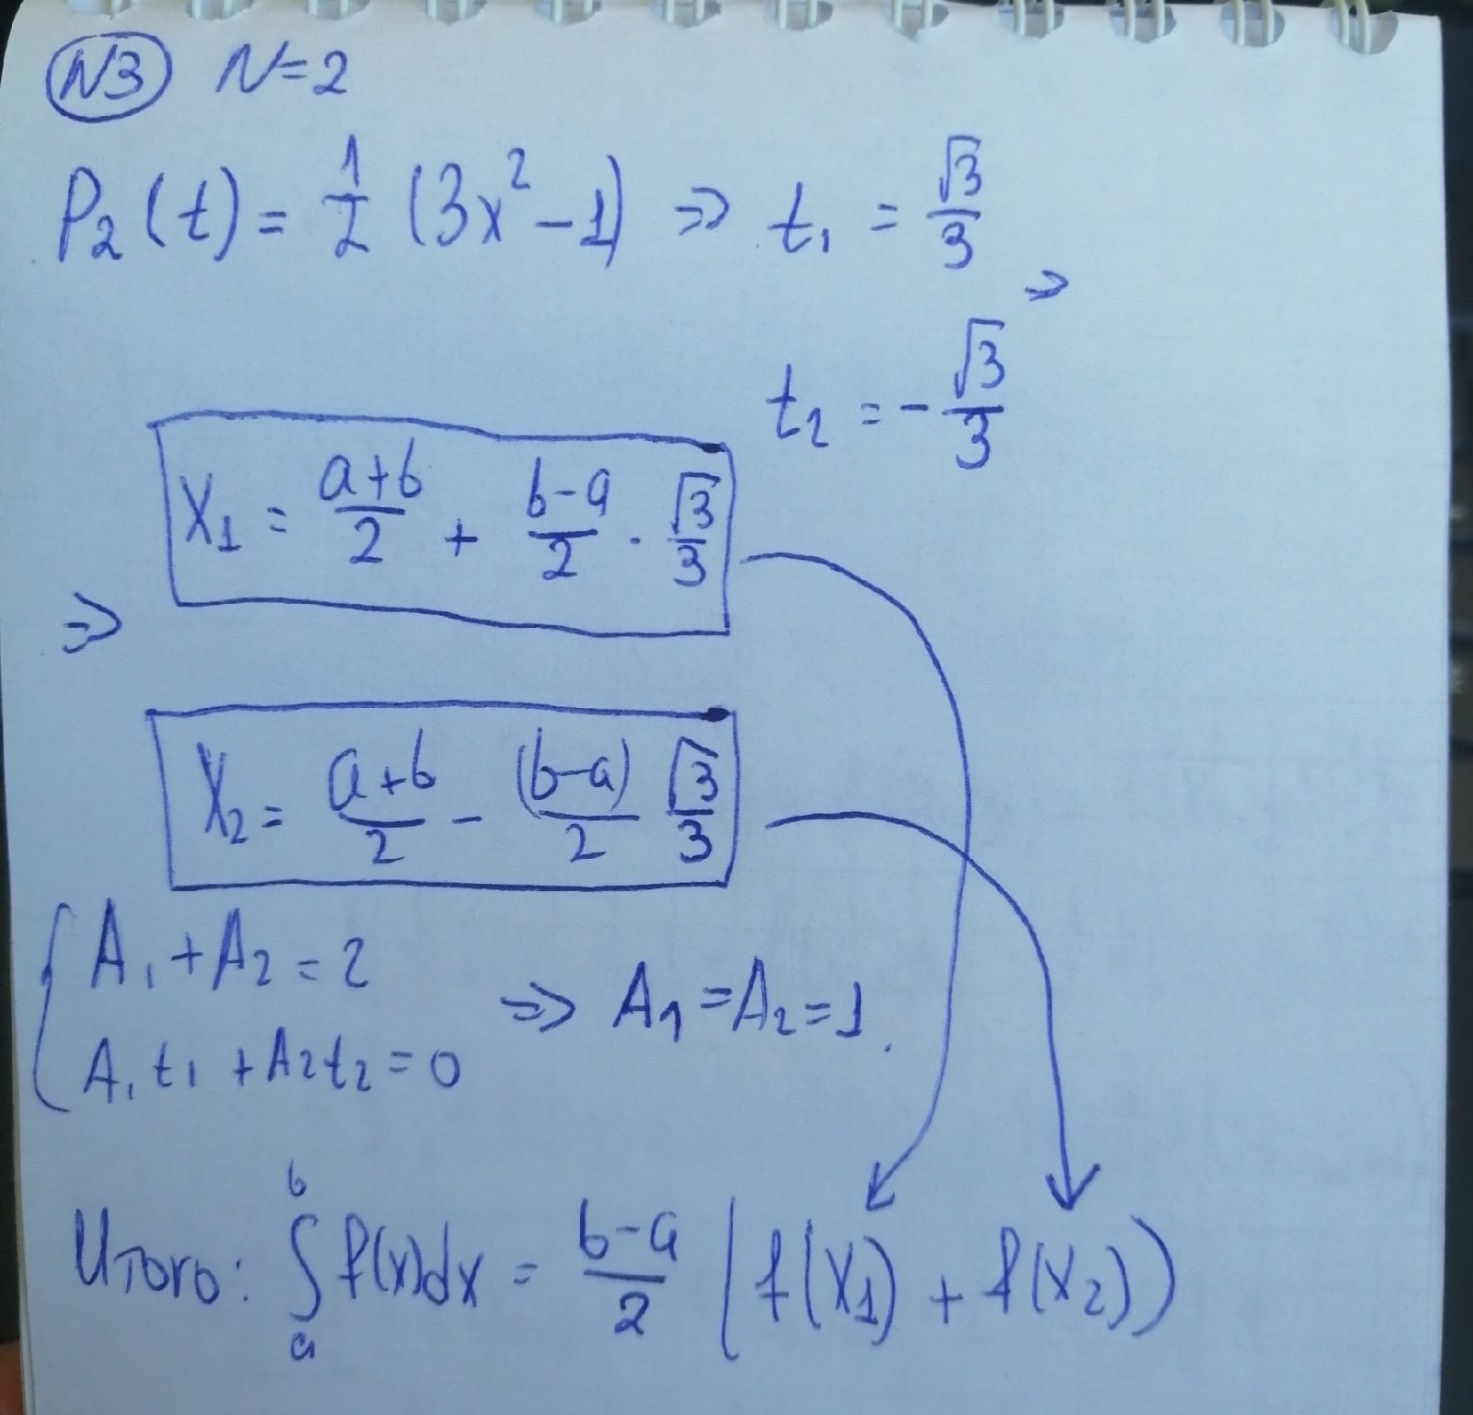 N3 N=2
P₂(t) = 1/2 (3x² - 1) ⇒ t₁ = √3/3
⇒
t₂ = -√3/3
X₁ = a+b/2 + b-a/2 · √3/3
⇒
X₂ = a+b/2 - (b-a)/2 √3/3
{ A₁ + A₂ = 2
A₁t₁ + A₂t₂ = 0
⇒ A₁ = A₂ = 1.
Итого: ∫ₐᵇ f(x)dx = b-a/2 (f(X₁) + f(X₂))